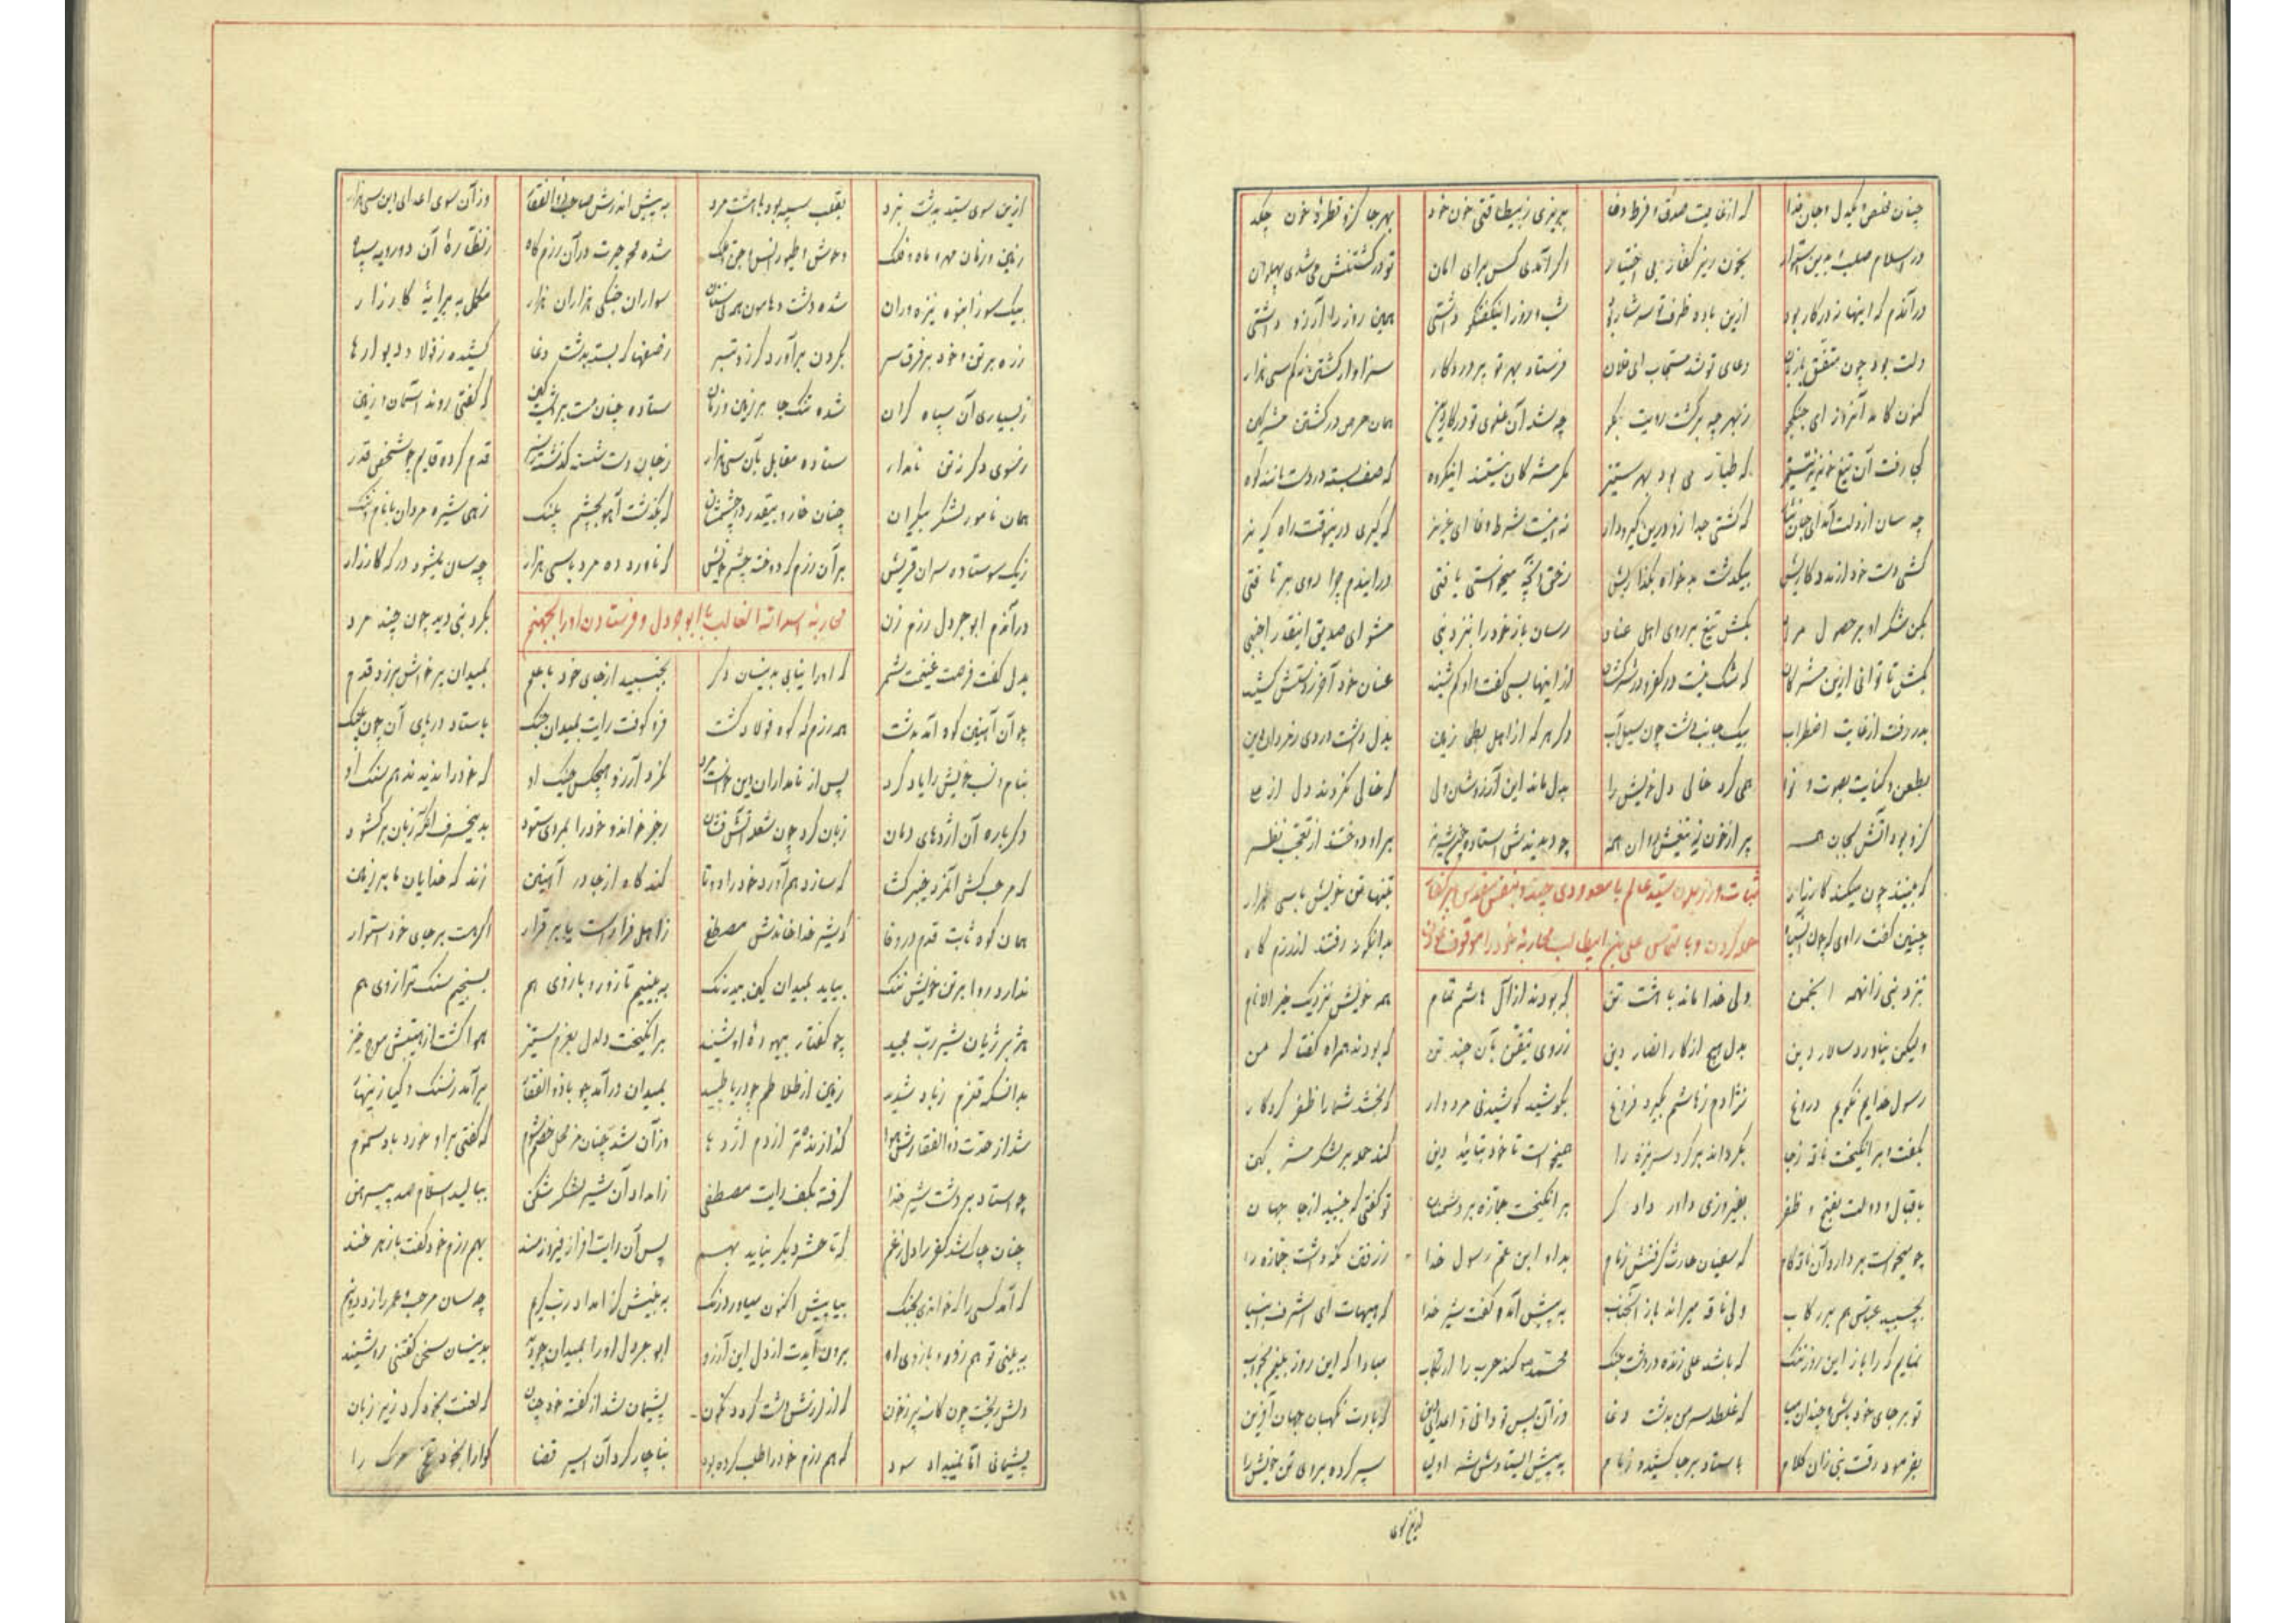 چنان مخلص و یکدل و جان فدا که از غایت صدق و فرط وفا بریزی ز بیطاقتی خون خود بهر جا کزو قطرهٔ خون چکد
در اسلام صلب و بدین استوار بخون ریز کفار بی اختیار اگر آمدی کس برای امان تو در کشتنش می شدی پهلوان
در آندم که اینها نه در کار بود ازین باده ظرف تو سرشار بود شب و روز این گفتگو داشتی همین روز را آرزو داشتی
دلت بود چون متفق با زبان دعای تو شد مستجاب ای فلان فرستاد بهر تو پروردگار سزاوار کشتن نه کم سی هزار
کنون کامد آنروز ای جنگجو ز بهر چه برگشت رویت بگو چه شد آن غلوی تو در کار دین همان حرص در کشتن مشرکین
کجا رفت آن تیغ خونریز تو که طیار می بود بهر ستیز مگر مشرکان نیستند اینگروه که صف بسته در دشت مانند کوه
چه سان از دلت آمد ای جان نثار که گشتی جدا زو درین گیرودار نه اینست شرط وفا ای عزیز که گیری درینوقت راه گریز
کشی دست خود از مددکاریش بیکدشت بدخواه بگذاریش ز حق آنچه میخواستی یافتی در ایندم چرا روی برتافتی
بکن شکر او بر حصول مراد بکش تیغ بر روی اهل عناد رسان باز خود را بنزد نبی مشو ای صدیق اینقدر اجنبی
بکش تا توانی ازین مشرکان که شک نیست در کفر و در شرکشان از اینها بسی گفت و او کم شنید عنان خود آخر ز دستش کشید
بدر رفت از غایت اضطراب بیک جانب دشت چون سیل آب دگر هر که از اهل بطحی زمین بدل داشت دردی ز مردان دین
بطعن و کنایت بصوت و نوا همی کرد خالی دل خویش را بدل ماند این آرزوشان ولی که خالی نکردند دل از علی
کزو بود آتش بجان همه پر از خون تیغش روان همه چو دیدندش استاده چون شیر نر براو دوختند از تعجب نظر
که بینند چون میکند کارزار بتنها تن خویش با سی هزار
ثبات ورزیدن سید عالم با معدودی چند و بنفس نفیس بر کفار
حمله کردن و بالتماس علی بن ابیطالب محاربهٔ خود را موقوف
چنین گفت راوی که چون آنسپاه بدانگونه رفتند از رزم گاه
بنزد نبی زانهمه انجمن ولی خدا ماند با هشت تن که بودند از آل هاشم تمام همه خویش نزدیک خیر الانام
ولیکن نیاورد سالار دین بدل هیچ از کار انصار دین ز روی تیقن بآن چند تن که بودند همراه گفتا که من
رسول خدایم نگویم دروغ نژادم ز هاشم بگیرد فروغ بکوشید کوشیدنی مردوار که بخشد شما را ظفر کردگار
بگفت و برانگیخت ناقه ز جا بگرداند بر گرد سر نیزه را همیخواست تا خود بتائید دین کند حمله بر لشکر مشرکین
باقبال و دولت بفتح و ظفر بفیروزی داور دادگر برانگیخت جمازه بر دشمنان تو گفتی که جنبید از جا جهان
چو میخواست بردارد آن ناقه گام که سفیان حارث گرفتش زمام بداد ابن عم رسول خدا ز رفتن نگهداشت جمازه را
بچسبید عباس هم بر رکاب ولی ناقه میراند باز آنجناب به پیش آمد و گفت شیر خدا که هیهات ای اشرف انبیا
نمایم که را باز این روز ننگ که باشد علی زنده در دشت جنگ محمد کند حرب را ارتکاب مبادا که این روز بینم بخواب
تو بر جای خود باش و چندان بپا که غلطد سر من بدشت وغا وزآن پس تو دانی و اعدای دین که یارت نگهبان جهان آفرین
بفرمود رقت نبی زان کلام باستاد بر جا کشیده زمام به پیش ایستادش شه اولیا سپر کرده بر وی تن خویش را
ازین سوی سید بدشت نبرد بقلب سپه بود با هشت مرد به پیش اندرش صاحب ذوالفقار وز آن سوی اعدای دین سی هزار
زمین و زمان مهر و ماه و فلک وحوش و طیور انس و جن و ملک شده محو حیرت در آن رزم گاه ز نظارهٔ آن دو رویه سپاه
بیک سو ز انبوه نیزه وران شده دشت و هامون همه نیستان سواران جنگی هزاران هزار مکمل به پیرایهٔ کارزار
زره بر تن و خود بر فرق سر بگردن برآورده گرز و تبر ز صفها که بسته بدشت وغا کشیده ز فولاد دیوارها
ز بسیاری آن سپاه گران شده تنگ جا بر زمین و زمان ستاده چنان مست بر پشت زین که گفتی روند آسمان و زمین
ز سوی دگر نه تن نامدار ستاده مقابل بآن سی هزار ز جان دست شسته گذشته ز سر قدم کرده قایم چو شخص قدر
همان نامور لشکر بیکران چنان خار و بیقدر در چشمشان که بگذشت آهو بچشم پلنگ زهی شیره مردان با نام و ننگ
ز یک سو ستاده سران قریش بر آن رزم گه دوخته چشم خویش که ناورد ده مرد با سی هزار چه سان میشود در گه کارزار
در آندم ابو جرول رزم زن
محاربهٔ اسد الله الغالب با ابو جرول و فرستادن او را بجهنم
بگرد نبی دید چون چند مرد
بدل گفت فرصت غنیمت شمر که او را نیابی بدینسان دگر بجنبید از جای خود با علم بمیدان پرخاش بر زد قدم
چو آن آهنین کوه آمد بدشت همه رزم گه کوه فولاد گشت فرو کوفت رایت بمیدان جنگ باستاد در پای آن چون پلنگ
بنام و نسب خویش را یاد کرد پس از نامداران دین خواست مرد نکرد آرزو هیچکس جنگ او که خود را ندیدند هم سنگ او
دگر باره آن اژدهای دمان زبان کرد چون شعله آتش فشان رجز خواند و خود را بمردی ستود بدینحرف آنگه زبان برگشود
که مرحب کش آنمرد خیبر گشا که سازد هم آورد خود را دوتا کند گاه از جا در آهنین زند گه خدایان ما بر زمین
همان کوه ثابت قدم در وغا که شیر خدا خاندش مصطفی ز اهل فرار است یا برقرار اگر هست بر جای خود استوار
ندارد روا بر تن خویش ننگ بیاید بمیدان کین بیدرنگ به بینیم تا زور و بازوی هم بسنجیم سنگ ترازوی هم
هژبر ژیان شیر رب مجید چو گفتار بیهودهٔ او شنید برانگیخت دلدل بعزم ستیز هوا گشت از هیبتش موج خیز
بدانسکه قلزم زباد شدید زمین از تلاطم چو دریا طپید بمیدان درآمد چو با ذوالفقار برآمد ز سنگ و گیا زینهار
شد از حدت ذوالفقارش هوا گدازنده تر از دم اژدها وز آن شد چنان مزمحل خصم شوم که گفتی بر او خورد باد سموم
چو استاد بر دشت شیر خدا گرفته بکف رایت مصطفی ز امداد آن شیر لشکر شکن ببالید اسلام صد پیرهن
چنان چاک شد کفر را دل ز غم که تا حشر دیگر نیاید بهم پس آن رایت افراز فیروزمند بهم رزم خود گفت با زهر خند
که آمد کسی را که خواندی بجنگ بیا پیش اکنون میاور درنگ به بینش کز امداد رب کریم چه سان مرحب و عمرو را زد دو نیم
به بینی تو هم زور و بازوی او برون آیدت از دل این آرزو ابو جرول او را بمیدان چو دید بدینسان سخن گفتنی زو شنید
دلش ریخت چون کاسه پر ز خون که از لرزش دست گردد نگون پشیمان شد از گفته خود چنان که لعنت بخود کرد زیر زبان
پشیمانی اما نمیداد سود که هم رزم خود را طلب کرده بود بناچار کرد آن اسیر قضا گوارا بخود مرگ را